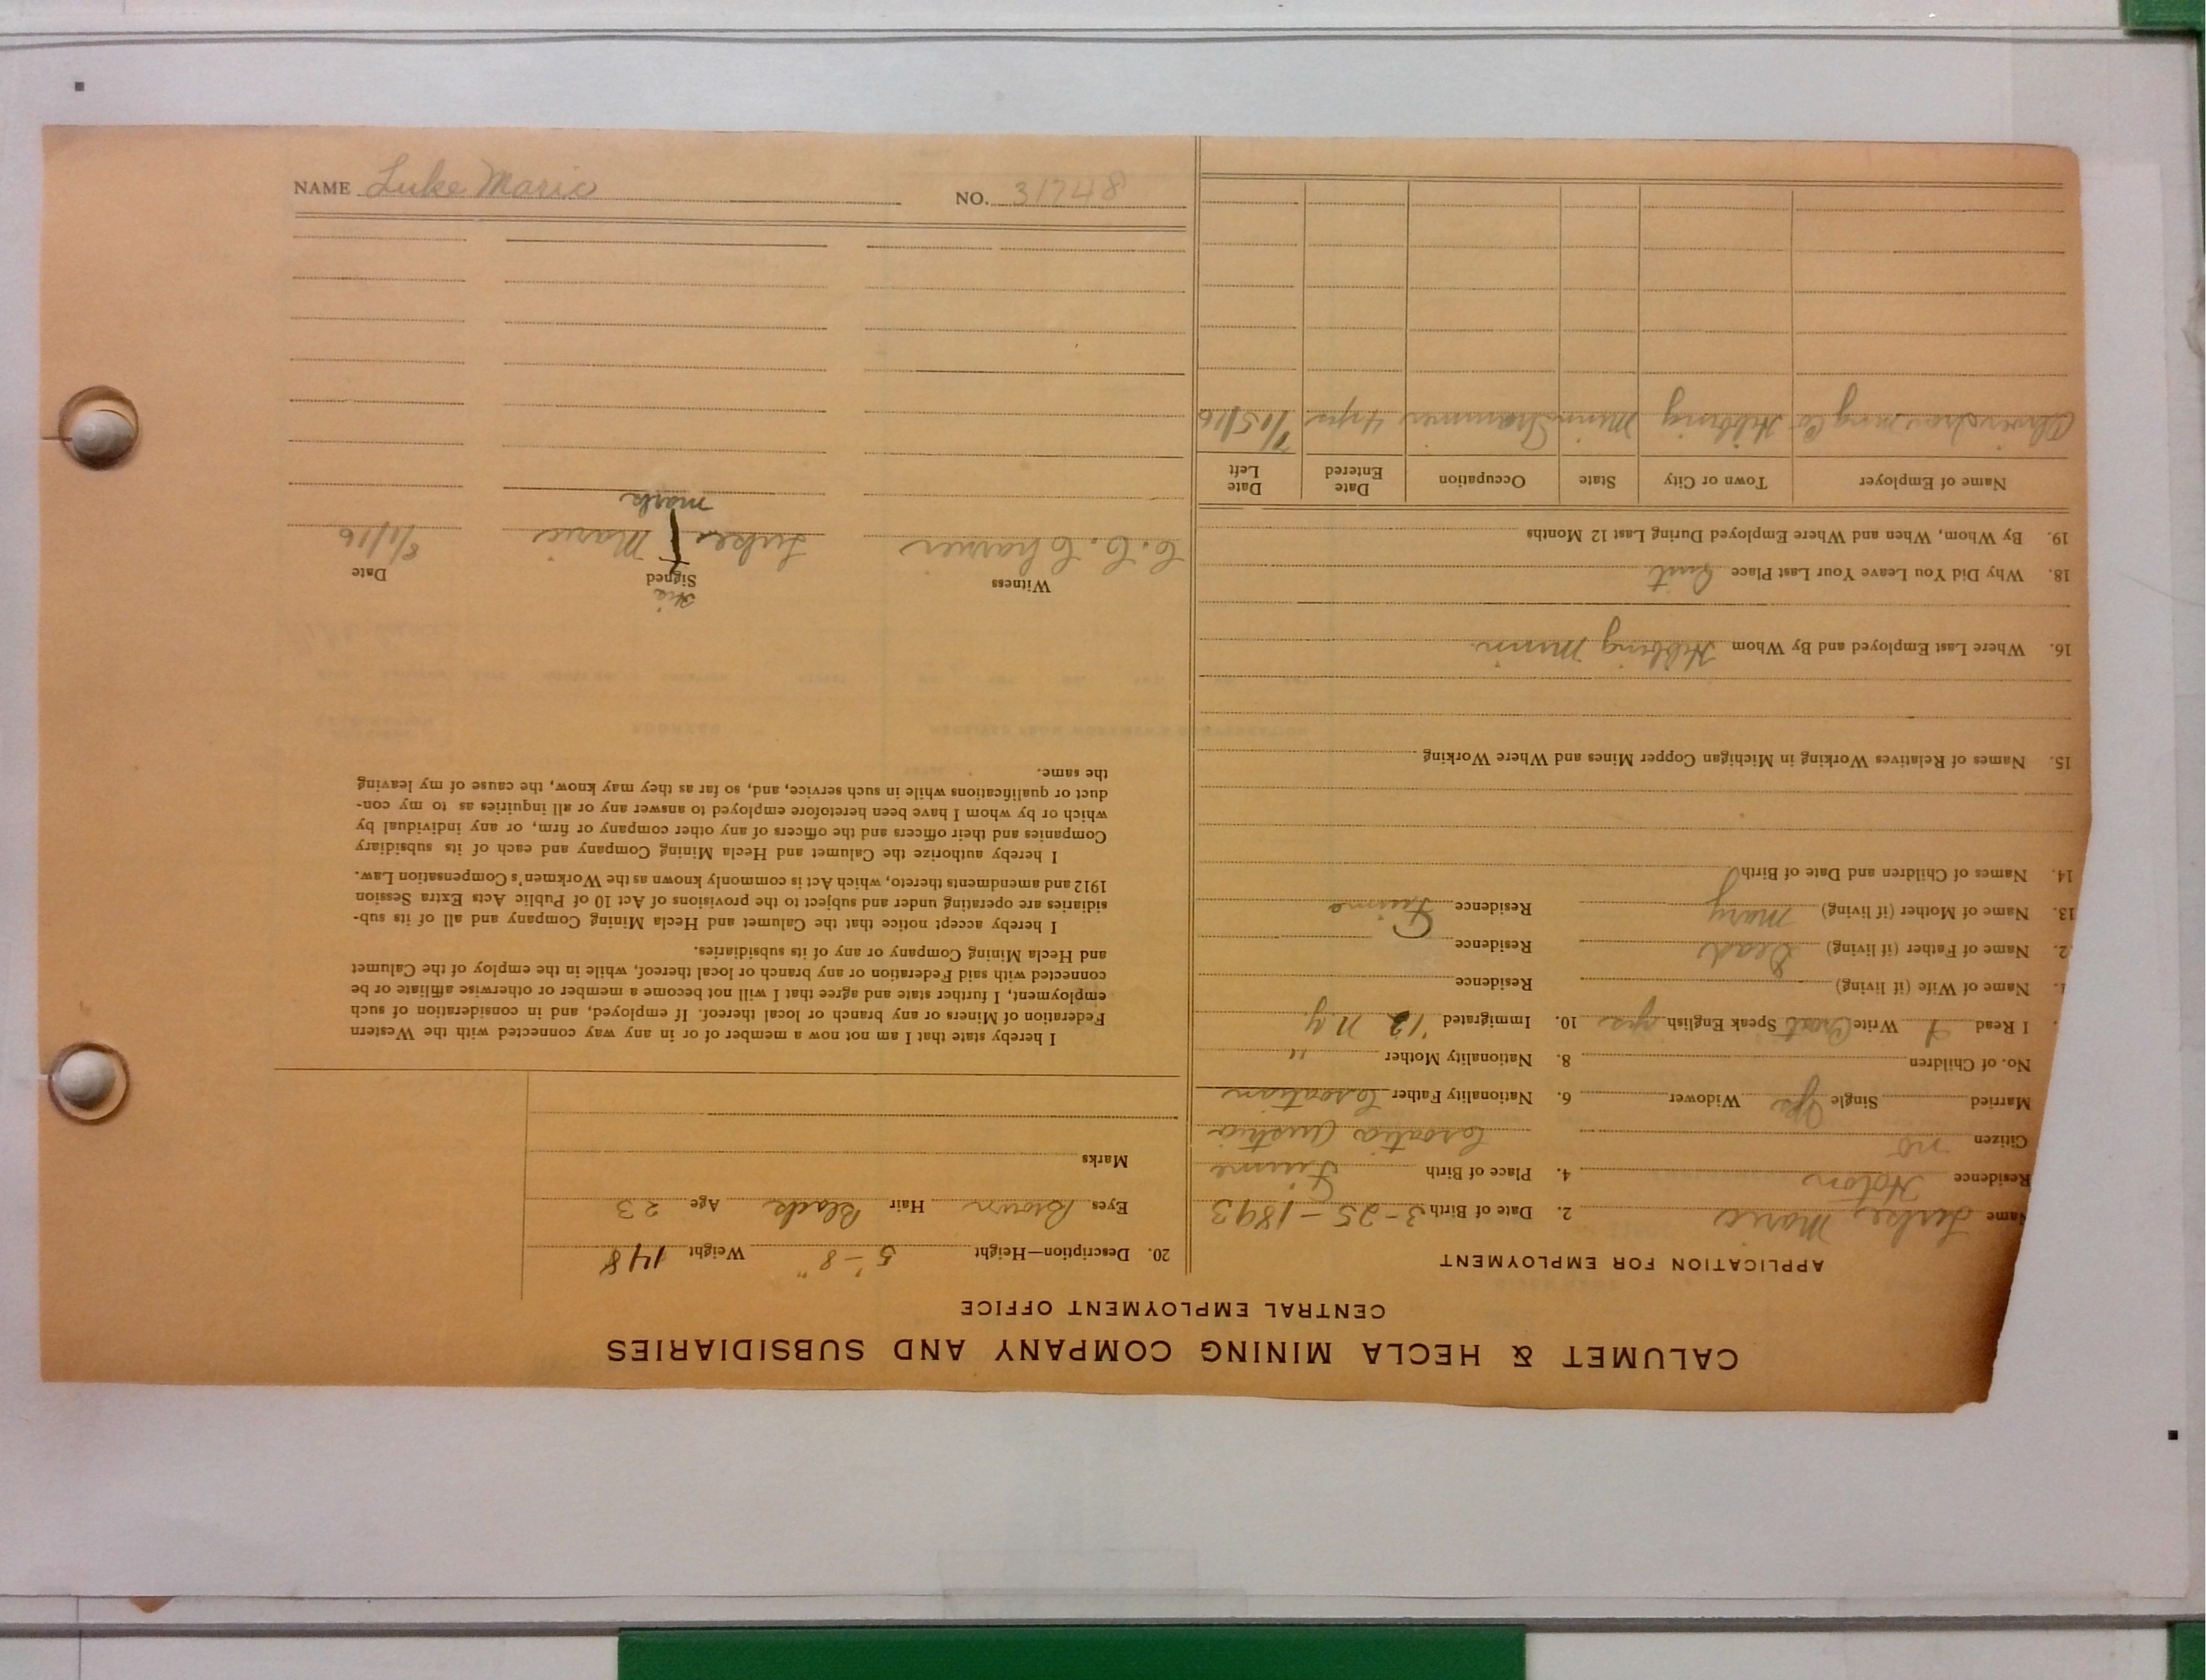 CALUMET & HECLA MINING COMPANY AND SUBSIDIARIES
CENTRAL EMPLOYMENT OFFICE
APPLICATION FOR EMPLOYMENT
Name Luke Maric 2. Date of Birth 3-25-1893
Residence 4. Place of Birth Fiume
Citizen no Croatia Austria
Married Single Yes Widower 6. Nationality Father Croatian
No. of Children 8. Nationality Mother "
I Read Write Croat Speak English yes 10. Immigrated '12 N.Y.
1. Name of Wife (if living) Residence
2. Name of Father (if living) Dead Residence
13. Name of Mother (if living) Mary Residence Fiume
14. Names of Children and Date of Birth
15. Names of Relatives Working in Michigan Copper Mines and Where Working
16. Where Last Employed and By Whom Hibbing Minn.
18. Why Did You Leave Your Last Place Quit
19. By Whom, When and Where Employed During Last 12 Months
Name of Employer Town or City State Occupation Date Entered Date Left
Oliver Iron Mng Co Hibbing Minn Trammer 4 yrs 7/15/16
20. Description—Height 5'-8" Weight 148
Eyes Brown Hair Black Age 23
Marks
I hereby state that I am not now a member of or in any way connected with the Western
Federation of Miners or any branch or local thereof. If employed, and in consideration of such
employment, I further state and agree that I will not become a member or otherwise affiliate or be
connected with said Federation or any branch or local thereof, while in the employ of the Calumet
and Hecla Mining Company or any of its subsidiaries.
I hereby accept notice that the Calumet and Hecla Mining Company and all of its sub-
sidiaries are operating under and subject to the provisions of Act 10 of Public Acts Extra Session
1912 and amendments thereto, which Act is commonly known as the Workmen's Compensation Law.
I hereby authorize the Calumet and Hecla Mining Company and each of its subsidiary
Companies and their officers and the officers of any other company or firm, or any individual by
which or by whom I have been heretofore employed to answer any or all inquiries as to my con-
duct or qualifications while in such service, and, so far as they may know, the cause of my leaving
the same.
his
Witness Signed Date
Luke Maric 8/1/16
mark
NAME Luke Maric NO. 31748